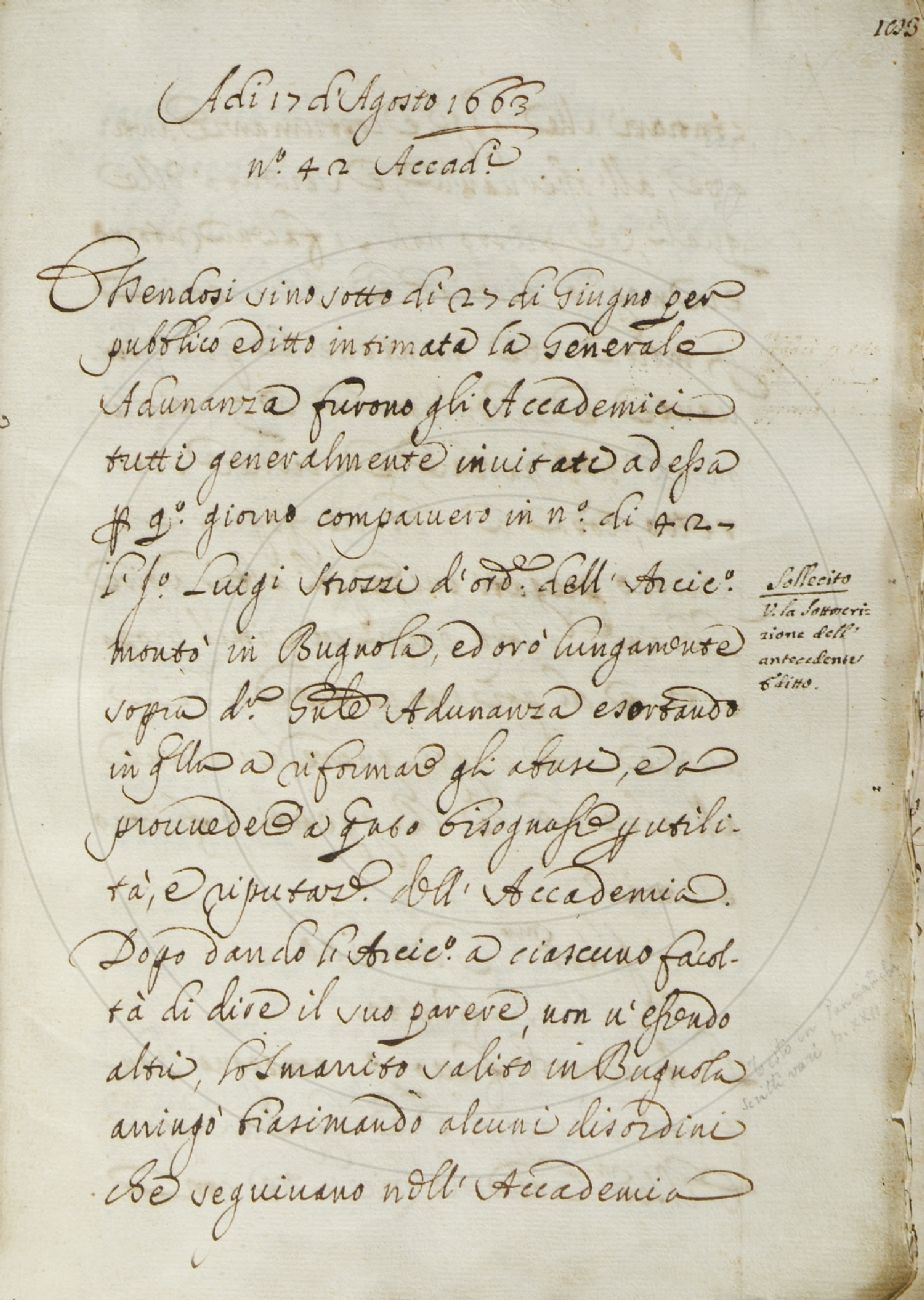 1093
Adi 17 d'Agosto 1663
n.º 42 Accad.i
Essendosi sino sotto di 27 di Giugno per
pubblico editto intimata la Generale
Adunanza furono gli Accademici
tutti generalmente invitati ad essa
p q.º giorno comparvero in n.º di 42-
l'I.º Luigi Strozzi d'ord.e dell' Arcic.º
montò in Bugnola, ed orò lungamente
sopra d.a Gn̄le Adunanza esortando
in q̄lla a riformare gli abusi, e a
provvedere a q̄nto bisognasse p utili-
tà, e riputaz.e dell' Accademia.
Dopo dando l'Arcic.º a ciascuno facol-
tà di dire il suo parere, non v'essendo
altri, lo Smarrito salito in Bugnola
arringò biasimando alcuni disordini
che seguivano nell' Accademia
Sollecito
V. la Sottoscri-
zione dell'
antecedente
Editto.
scritti vari